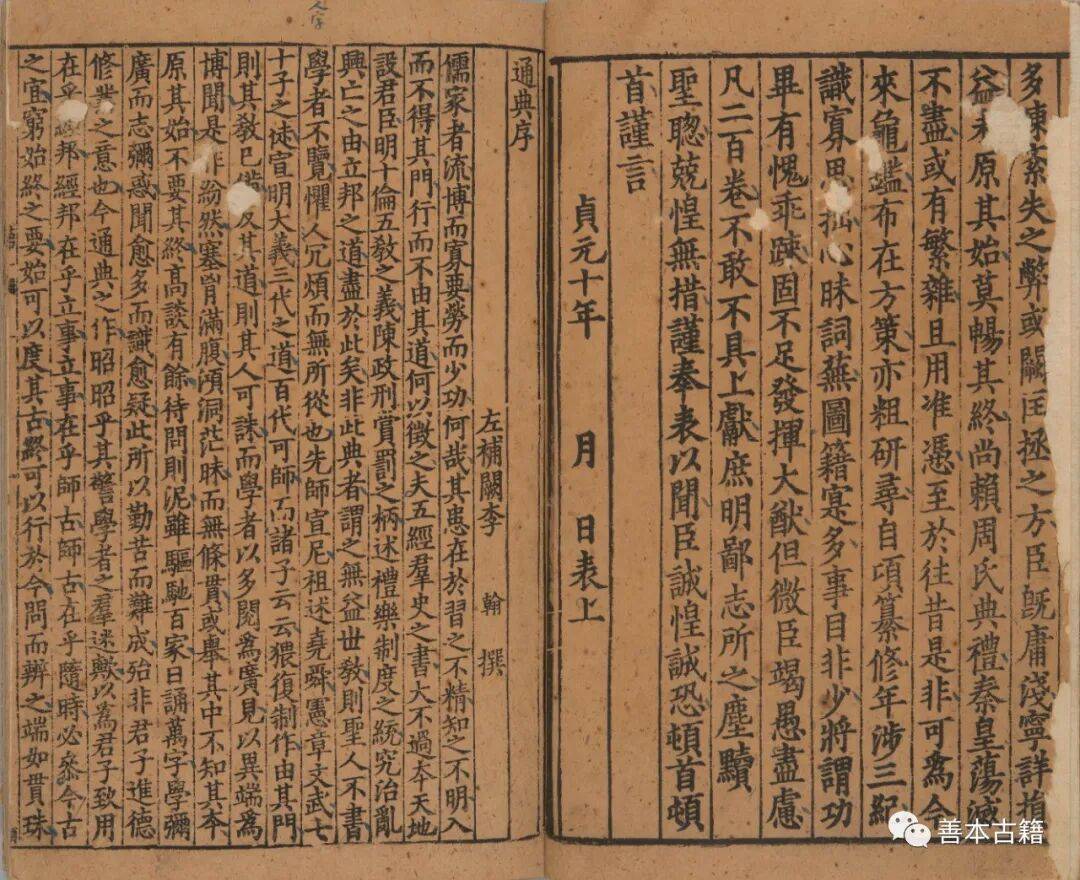 多陳紊失之弊或闕匡拯之方臣旣庸淺寧詳損
益 原其始莫暢其終尚賴周氏典禮秦皇蕩滅
不盡或有繁雜且用准憑至於往昔是非可爲今
來龜鑑布在方策亦粗研尋自頃纂修年涉三紀
識寡思拙心昧詞蕪圖籍寔多事目非少將謂功
畢有愧乖踈固不足發揮大猷但微臣竭愚盡慮
凡二百卷不敢不具上獻庶明鄙志所之塵黷
聖聦兢惶無措謹奉表以聞臣誠惶誠恐頓首頓
首謹言
貞元十年 月 日表上
通典序
左補闕李 翰 撰
儒家者流博而寡要勞而少功何哉其患在於習之不精知之不明入
而不得其門行而不由其道何以徵之夫五經羣史之書大不過夲天地
設君臣明十倫五教之義陳政刑賞罰之柄述禮樂制度之統究治亂
興亡之由立邦之道盡於此矣非此典者謂之無益世教則聖人不書
學者不覽懼人冗煩而無所從也先師宣尼祖述堯舜憲章文武七
十子之徒宣明大義三代之道百代可師而諸子云云猥復制作由其門
則其教已備反其道則其人可誅而學者以多閱爲廣見以異端爲
博聞是非紛然塞胷滿腹澒洞茫昧而無條貫或舉其中不知其夲
原其始不要其終高談有餘待問則泥雖驅馳百家日誦萬字學彌
廣而志彌惑聞愈多而識愈疑此所以勤苦而難成殆非君子進德
修業之意也今通典之作昭昭乎其警學者之羣迷歟以爲君子致用
在乎 邦經邦在乎立事立事在乎師古師古在乎隨時必參今古
之宜窮始終之要始可以度其古終可以行於今問而辨之端如貫珠
人字
善本古籍